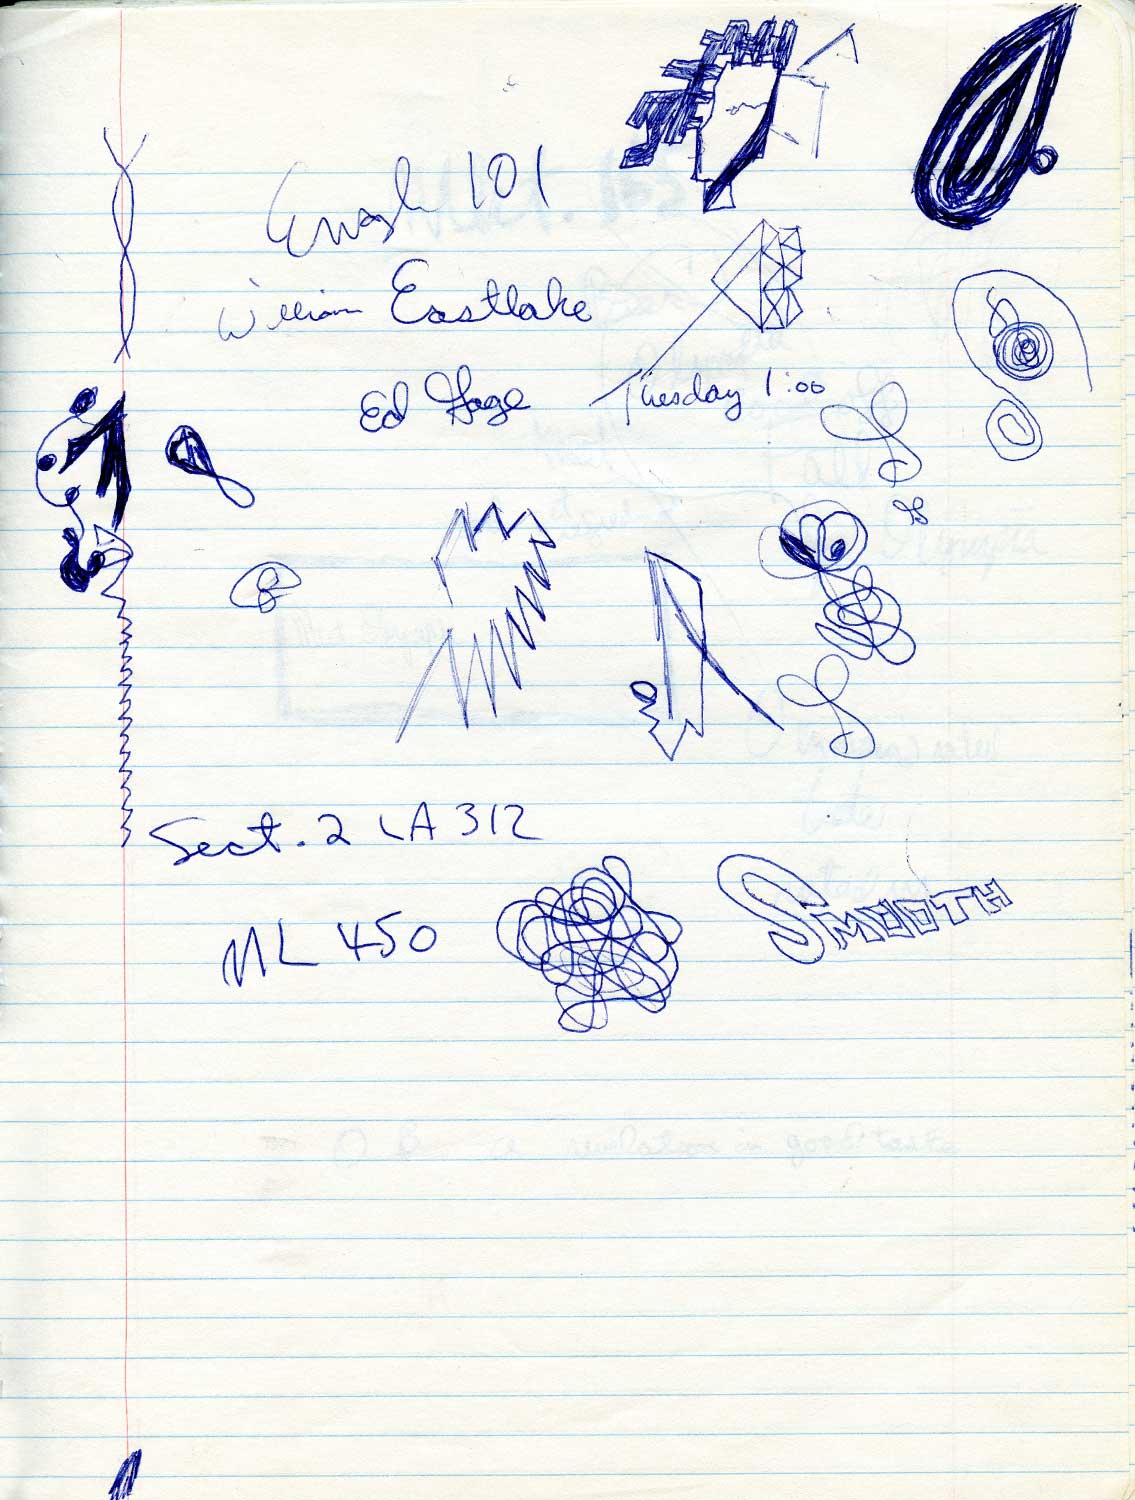 English 101
William Eastlake
Ed Gage Tuesday 1:00
Sect. 2 LA 312
ML 450
SMOOTH